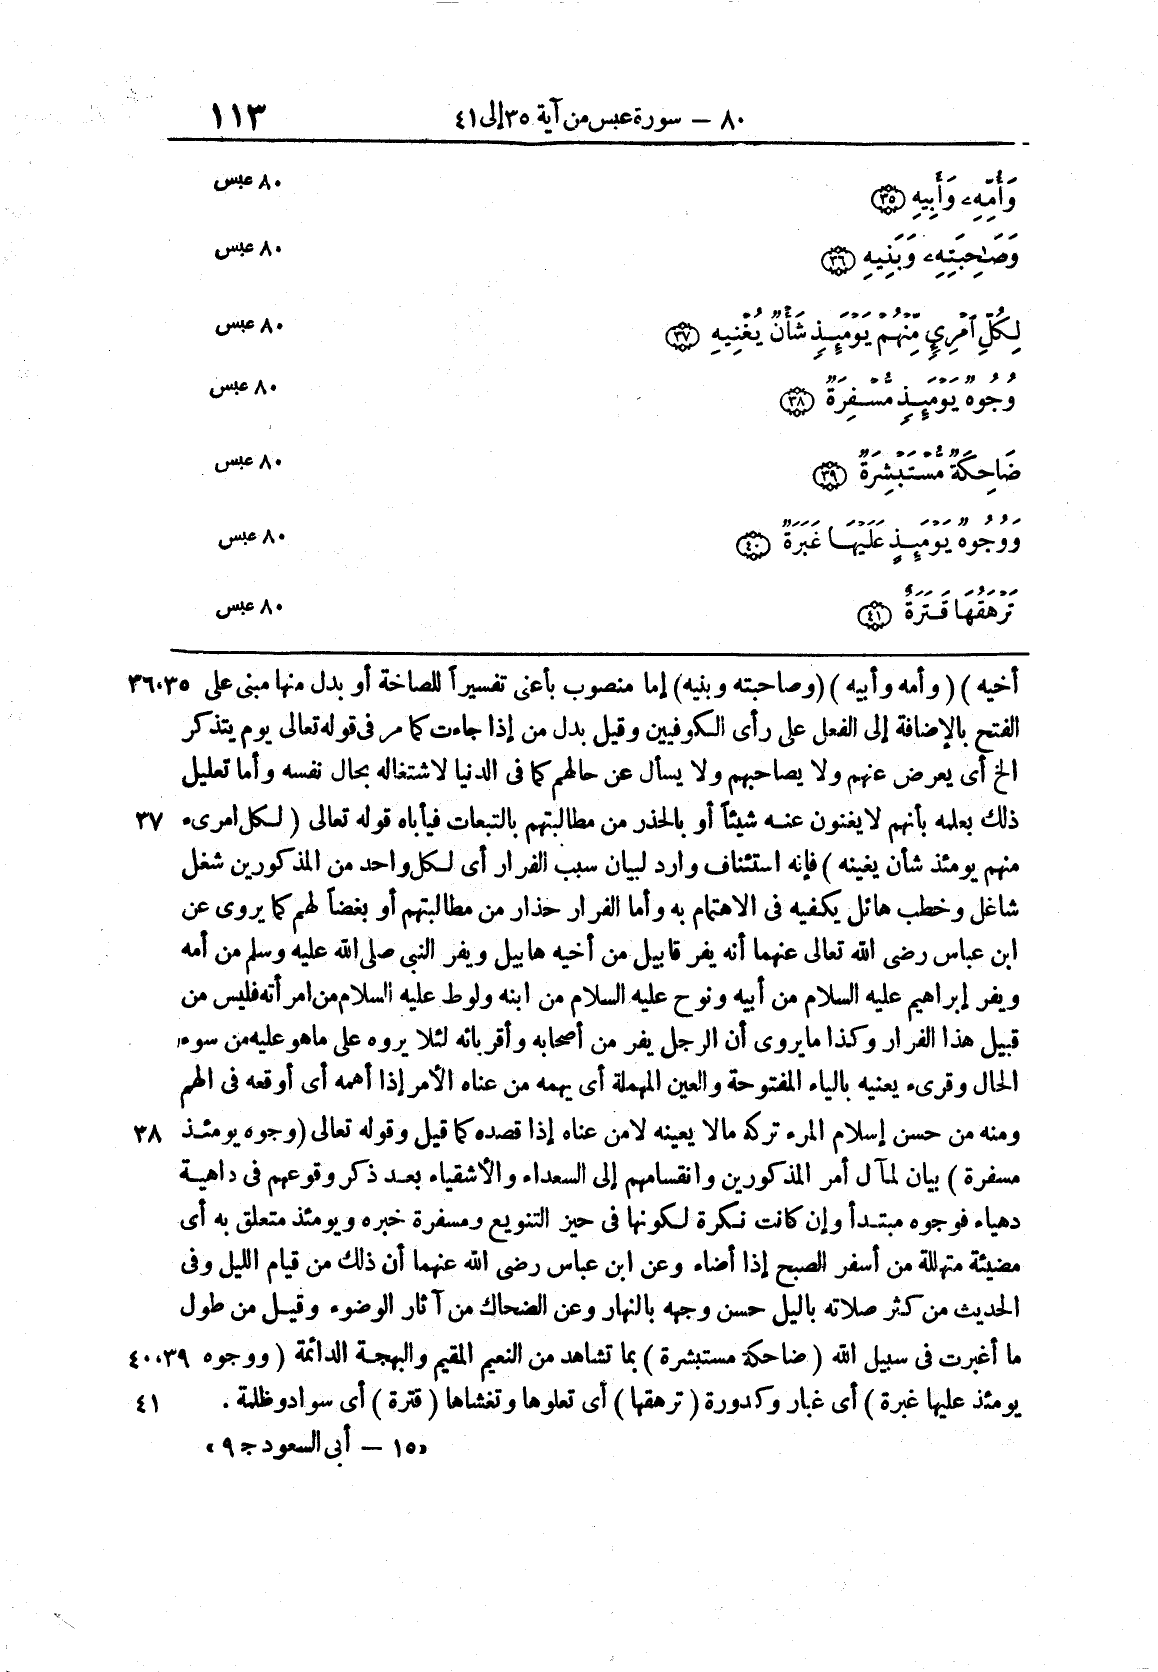 ٨٠ – سورة عبس من آية ٣٥ إلى ٤١ ١١٣
وَأُمِّهِۦ وَأَبِيهِ ﴿٣٥﴾ ٨٠ عبس
وَصَـٰحِبَتِهِۦ وَبَنِيهِ ﴿٣٦﴾ ٨٠ عبس
لِكُلِّ ٱمْرِئٍ مِّنْهُمْ يَوْمَئِذٍ شَأْنٌ يُغْنِيهِ ﴿٣٧﴾ ٨٠ عبس
وُجُوهٌ يَوْمَئِذٍ مُّسْفِرَةٌ ﴿٣٨﴾ ٨٠ عبس
ضَاحِكَةٌ مُّسْتَبْشِرَةٌ ﴿٣٩﴾ ٨٠ عبس
وَوُجُوهٌ يَوْمَئِذٍ عَلَيْهَا غَبَرَةٌ ﴿٤٠﴾ ٨٠ عبس
تَرْهَقُهَا قَتَرَةٌ ﴿٤١﴾ ٨٠ عبس
أخيه ) ( وأمه وأبيه ) (وصاحبته وبنيه) إما منصوب بأعنى تفسيراً للصاخة أو بدل منها مبنى على ٣٦،٣٥
الفتح بالإضافة إلى الفعل على رأى الكوفيين وقيل بدل من إذا جاءت كما مر فى قوله تعالى يوم يتذكر
الخ أى يعرض عنهم ولا يصاحبهم ولا يسأل عن حالهم كما فى الدنيا لاشتغاله بحال نفسه وأما تعليل
ذلك بعلمه بأنهم لايغنون عنه شيئاً أو بالحذر من مطالبتهم بالتبعات فيأباه قوله تعالى ( لكل امرىء ٣٧
منهم يومئذ شأن يغينه ) فإنه استئناف وارد لبيان سبب الفرار أى لكل واحد من المذكورين شغل
شاغل وخطب هائل يكفيه فى الاهتمام به وأما الفرار حذار من مطالبتهم أو بغضاً لهم كما يروى عن
ابن عباس رضى الله تعالى عنهما أنه يفر قابيل من أخيه هابيل ويفر النبى صلى الله عليه وسلم من أمه
ويفر إبراهيم عليه السلام من أبيه ونوح عليه السلام من ابنه ولوط عليه السلام من امرأته فليس من
قبيل هذا الفرار وكذا مايروى أن الرجل يفر من أصحابه وأقربائه لئلا يروه على ماهو عليه من سوء
الحال وقرىء يعنيه بالياء المفتوحة والعين المهملة أى يهمه من عناه الأمر إذا أهمه أى أوقعه فى الهم
ومنه من حسن إسلام المرء تركه مالا يعينه لامن عناه إذا قصده كما قيل وقوله تعالى (وجوه يومئذ ٣٨
مسفرة ) بيان لمآل أمر المذكورين وانقسامهم إلى السعداء والأشقياء بعد ذكر وقوعهم فى داهية
دهياء فوجوه مبتدأ وإن كانت نكرة لكونها فى حيز التنويع ومسفرة خبره ويومئذ متعلق به أى
مضيئة متهللة من أسفر الصبح إذا أضاء وعن ابن عباس رضى الله عنهما أن ذلك من قيام الليل وفى
الحديث من كثر صلاته باليل حسن وجهه بالنهار وعن الضحاك من آثار الوضوء وقيل من طول
ما أغبرت فى سبيل الله ( ضاحكة مستبشرة ) بما تشاهد من النعيم المقيم والبهجة الدائمة ( ووجوه ٤٠،٣٩
يومئذ عليها غبرة ) أى غبار وكدورة ( ترهقها ) أى تعلوها وتغشاها ( قترة ) أى سواد وظلمة . ٤١
«١٥ – أبى السعود ج ٩»